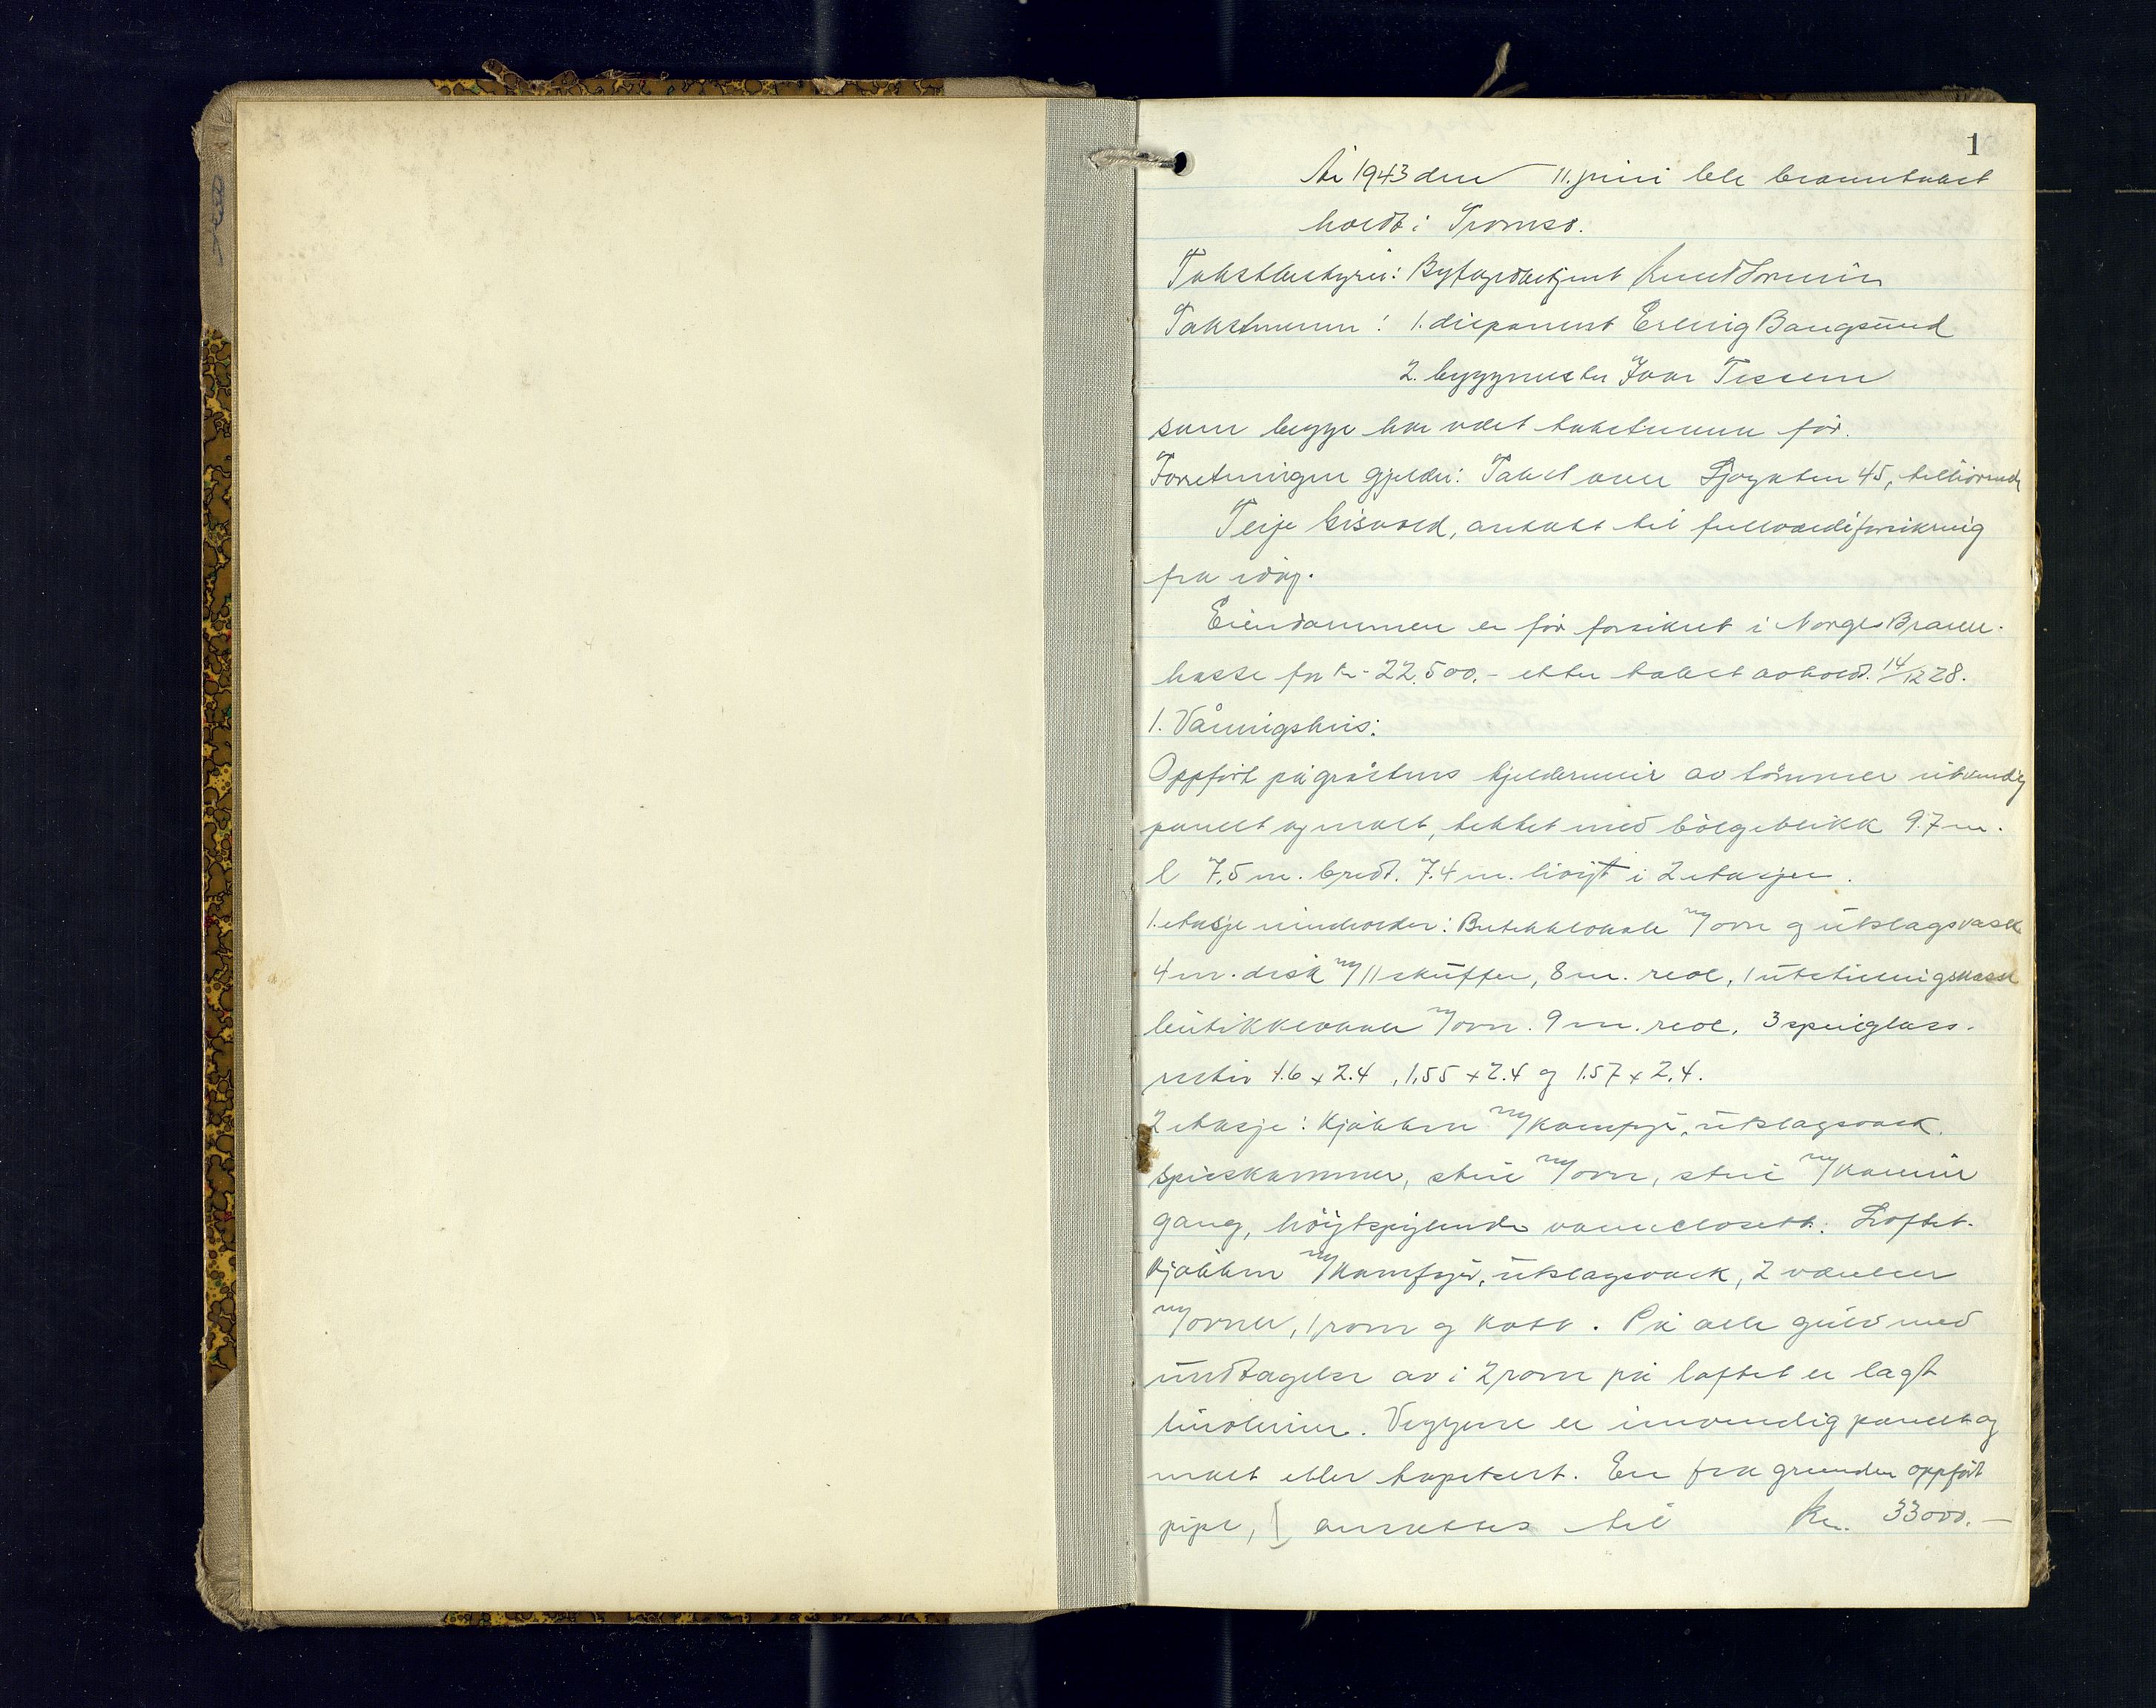 1
År 1943 den 11. juni ble branntakst
holdt i Tromsø.
Takstbestyrer: Byfogdbetjent
Takstmenn: 1. disponent Erling Bangsund
2. byggmester Ivar Tessem
som begge har vært takstmenn før.
Forretningen gjelder: Takst over Sjøgaten 45, tilhörende
Terje Gisvold, antatt til fullverdiforsikring
fra idag.
Eiendommen er før forsikret i Norges Brann-
kasse for kr. 22.500.- etter takst avhold. 14/12 28.
1. Våningshus:
Oppført på gråstens kjeldermur av tömmer utvendig
panelt og malt, tekket med bölgeblikk 9.7 m.
l 7,5 m. bredt. 7.4 m. höigt i 2 etasjer.
1. etasje inneholder: Butikklokale m/ovn og utslagsvask
4 m. disk m/11 skuffer, 8 m. reol, 1 utstillingskasse
butikklokale m/ovn. 9 m. reol, 3 speilglass-
ruter 1.6 x 2.4, 1,55 x 2.4 og 1.57 x 2.4.
2 etasje: Kjökken m/komfyr, utslagsvask,
spiskammer, stue m/ovn, stue m/kamin
gang, höytspylende vannclosett. Loftet.
Kjökken m/komfyr, utslagsvask, 2 værelser
m/ovner, 1 rom og kott. På alle gulv med
undtagelse av i 2 rom på loftet er lagt
linoleum. Veggene er innvendig panelt og
malt eller tapetsert. En fra grunden oppfört
pipe, ansettes til Kr. 33000.—